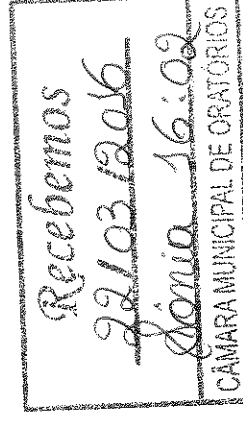 Recebemos
22/03/2016
Sônia 16:02
CÂMARA MUNICIPAL DE ORATÓRIOS